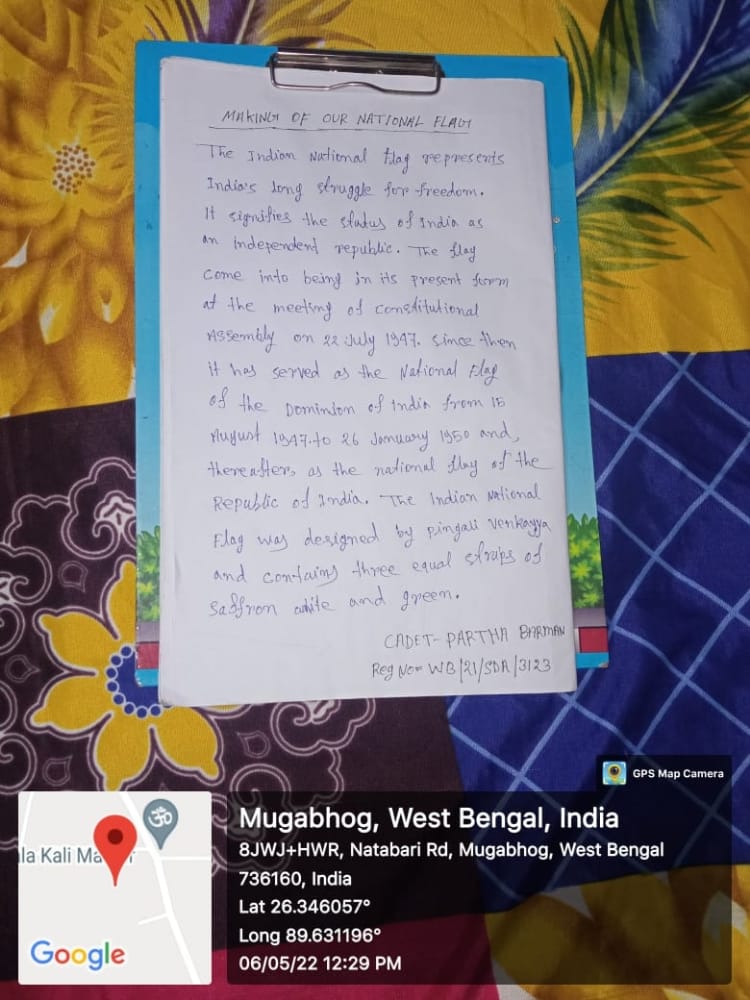 MAKING OF OUR NATIONAL FLAG
The Indian National flag represents
India's long struggle for freedom.
It signifies the status of India as
an independent republic. The flag
come into being in its present form
at the meeting of constitutional
Assembly on 22 July 1947. Since then
it has served as the National Flag
of the Dominion of India from 15
August 1947. to 26 January 1950 and,
thereafter, as the national flag of the
Republic of India. The Indian National
Flag was designed by Pingali Venkayya
and contains three equal strips of
saffron white and green.
CADET- PARTHA BARMAN
Reg No= WB/21/SDA/3123
GPS Map Camera
la Kali Ma
Google
Mugabhog, West Bengal, India
8JWJ+HWR, Natabari Rd, Mugabhog, West Bengal
736160, India
Lat 26.346057°
Long 89.631196°
06/05/22 12:29 PM